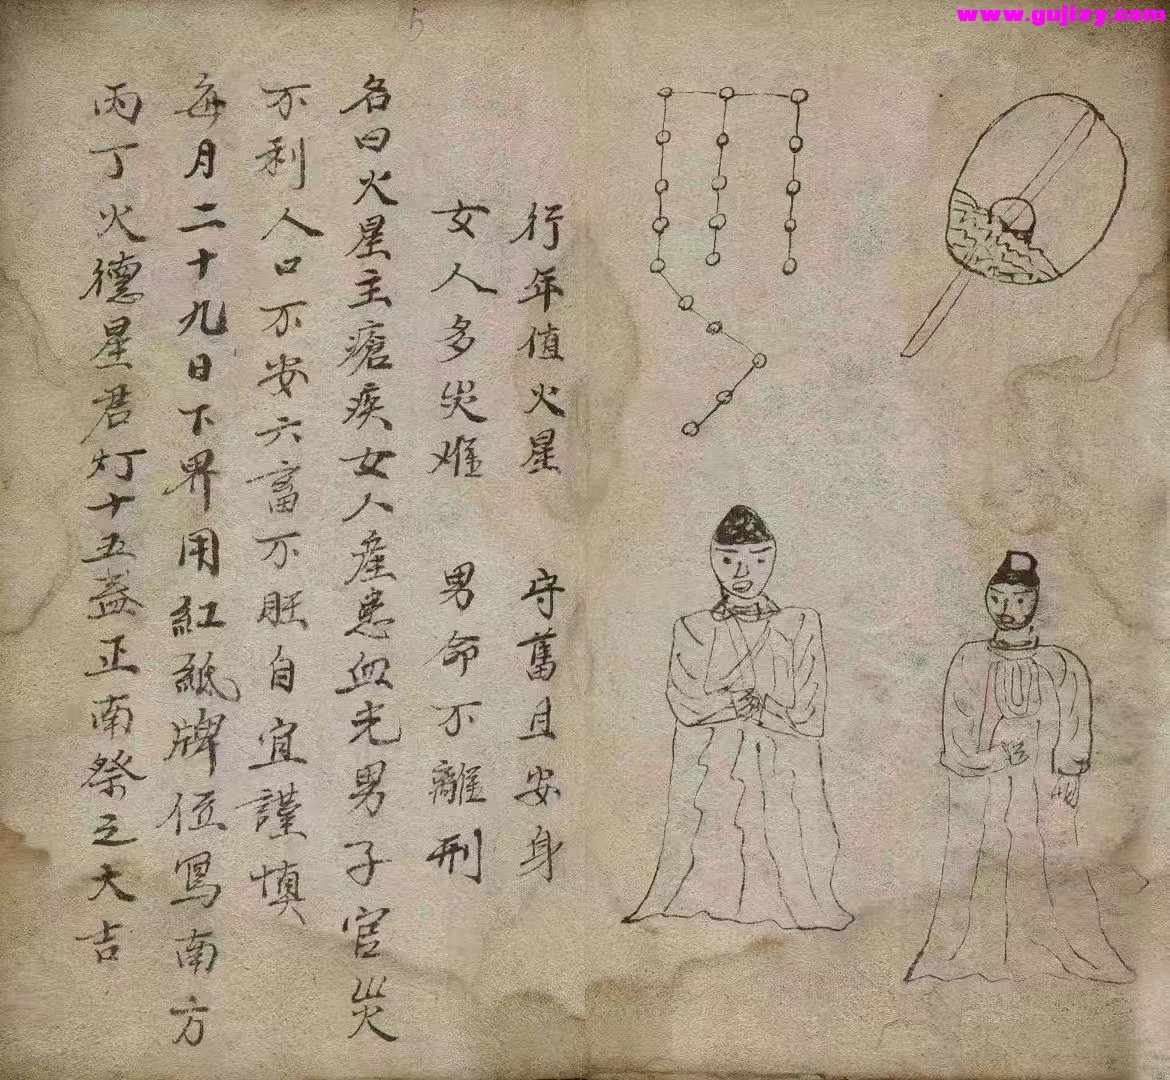 www.gujizy.com
5
行年值火星 守舊且安身
女人多災难 男命不離刑
名曰火星主瘡疾女人產患血光男子官災
不利人口不安六畜不旺自宜謹慎
每月二十九日下界用紅紙牌位寫南方
丙丁火德星君灯十五盏正南祭之大吉